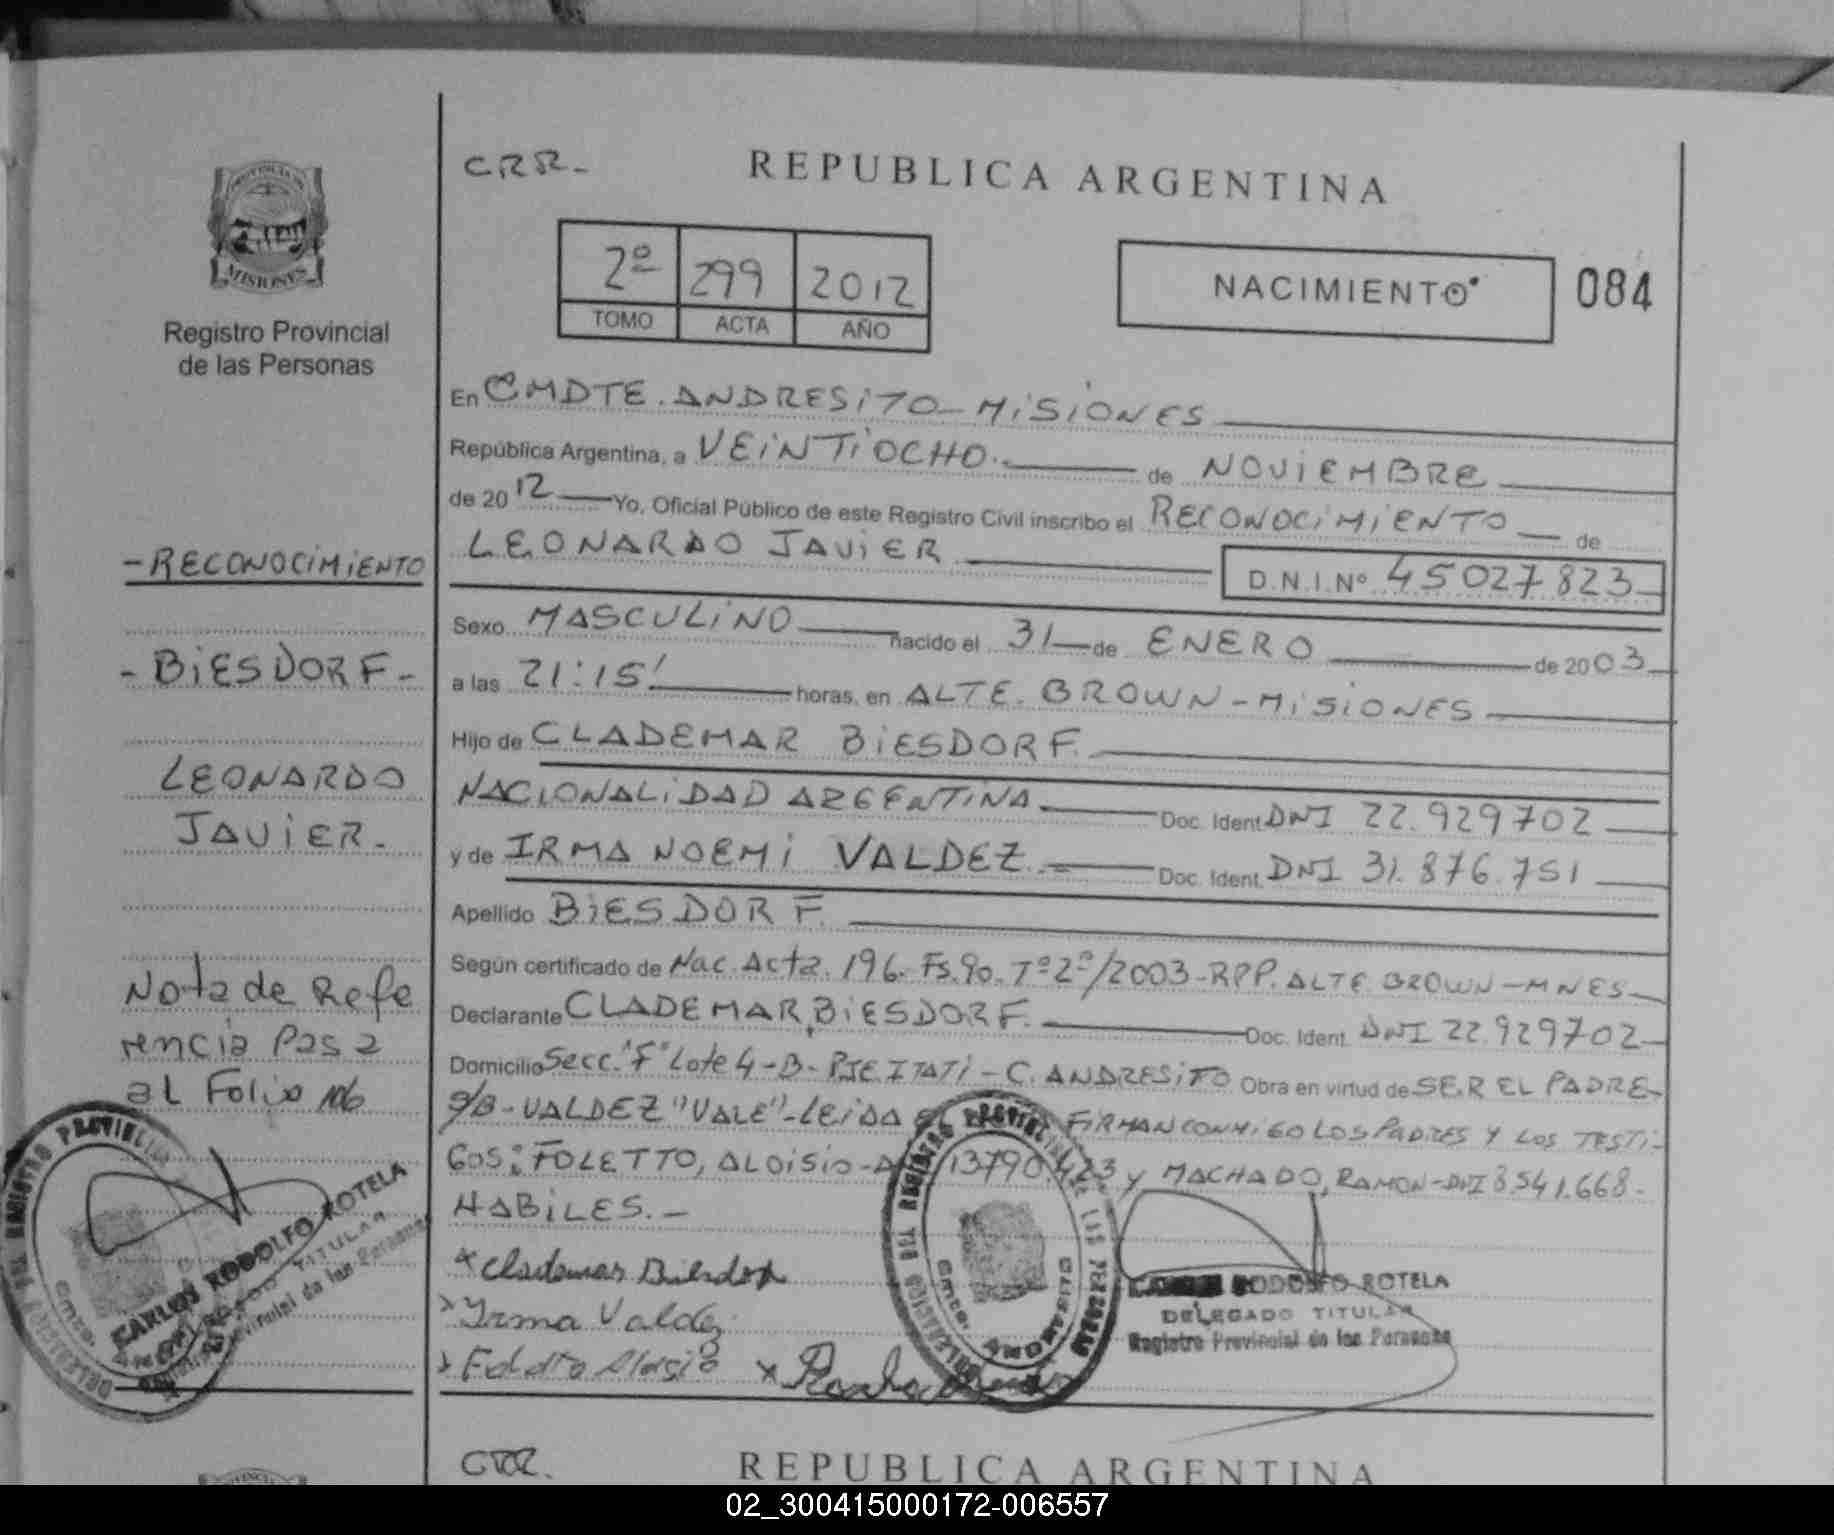 CRR- REPUBLICA ARGENTINA
PROVINCIA DE
MISIONES
Registro Provincial
de las Personas
2º 299 2012
TOMO ACTA AÑO
NACIMIENTO 084
En CMDTE. ANDRESITO - MISIONES
República Argentina, a VEINTIOCHO. de NOVIEMBRE
de 2012 Yo, Oficial Público de este Registro Civil inscribo el RECONOCIMIENTO de
LEONARDO JAVIER D.N.I.Nº 45027823
Sexo MASCULINO nacido el 31 de ENERO de 2003
a las 21:15' horas, en ALTE. BROWN - MISIONES
Hijo de CLADEMAR BIESDORF.
NACIONALIDAD ARGENTINA Doc. Ident DNI 22.929702
y de IRMA NOEMI VALDEZ.- Doc. Ident. DNI 31.876.751
Apellido BIESDORF.
Según certificado de Nac. Acta. 196. Fs.90. Tº2º/2003-RPP. ALTE BROWN-MNES
Declarante CLADEMAR BIESDORF. Doc. Ident. DNI 22.929702
Domicilio Secc. "F" Lote 4-B- PJE ITATI - C. ANDRESITO Obra en virtud de SER EL PADRE-
S/B-VALDEZ "VALE"-LEIDA FIRMAN CONMIGO LOS PADRES Y LOS TESTI-
GOS: FOLETTO, ALOISIO- 13790.423 y MACHADO, RAMON-DNI 8.541.668.
HABILES.-
-RECONOCIMIENTO
-BIESDORF-
LEONARDO
JAVIER-
Nota de Refe
rencia Pasa
al Folio 106
CARLOS RODOLFO ROTELA
DELEGADO TITULAR
Registro Provincial de las Personas
x Clademar Biesdorf
Irma Valdez
x
RODOLFO ROTELA
DELEGADO TITULAR
Registro Provincial de las Personas
CRR. REPUBLICA ARGENTINA
02_300415000172-006557